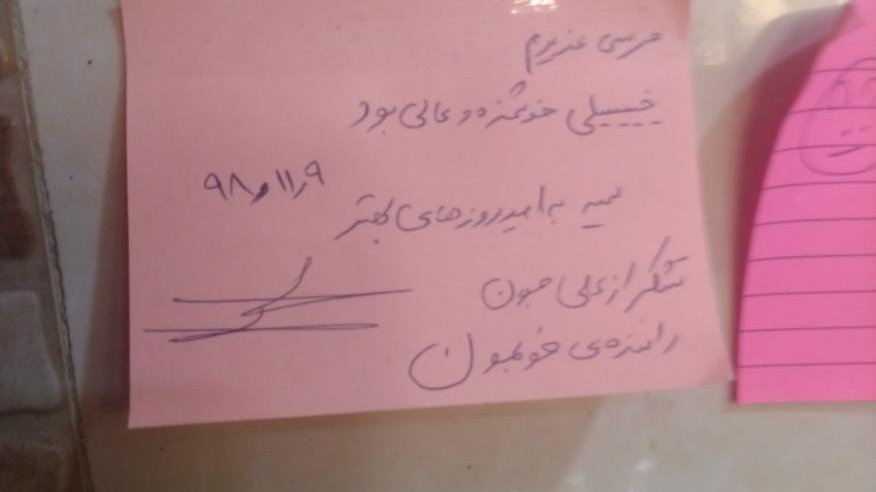 مرسی عزیزم
خیییلی خوشمزه و عالی بود
۹۸،۱۱،۹
به امید روزهای بهتر
تشکر از علی جون
راننده‌ی خوبمون